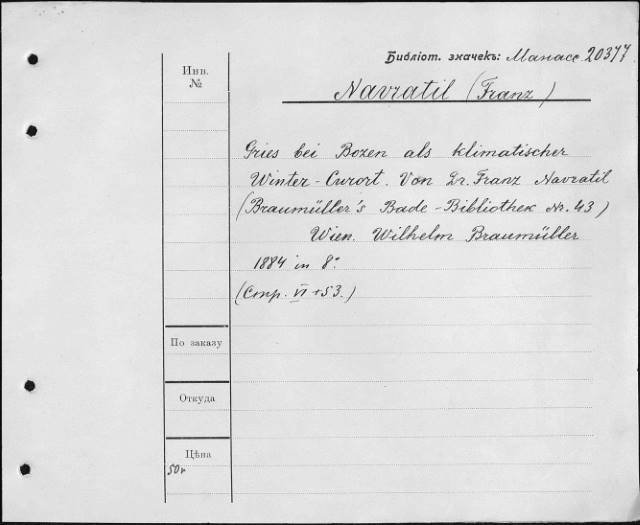 Библіот. значекъ: Манасс. 20377
Инв.
№
Navratil (Franz)
Gries bei Bozen als klimatischer
Winter-Curort. Von Dr. Franz Navratil
(Braumüller's Bade-Bibliothek Nr. 43)
Wien. Wilhelm Braumüller
1884 in 8°
(Стр. VI + 53.)
По заказу
Откуда
Цѣна
50к